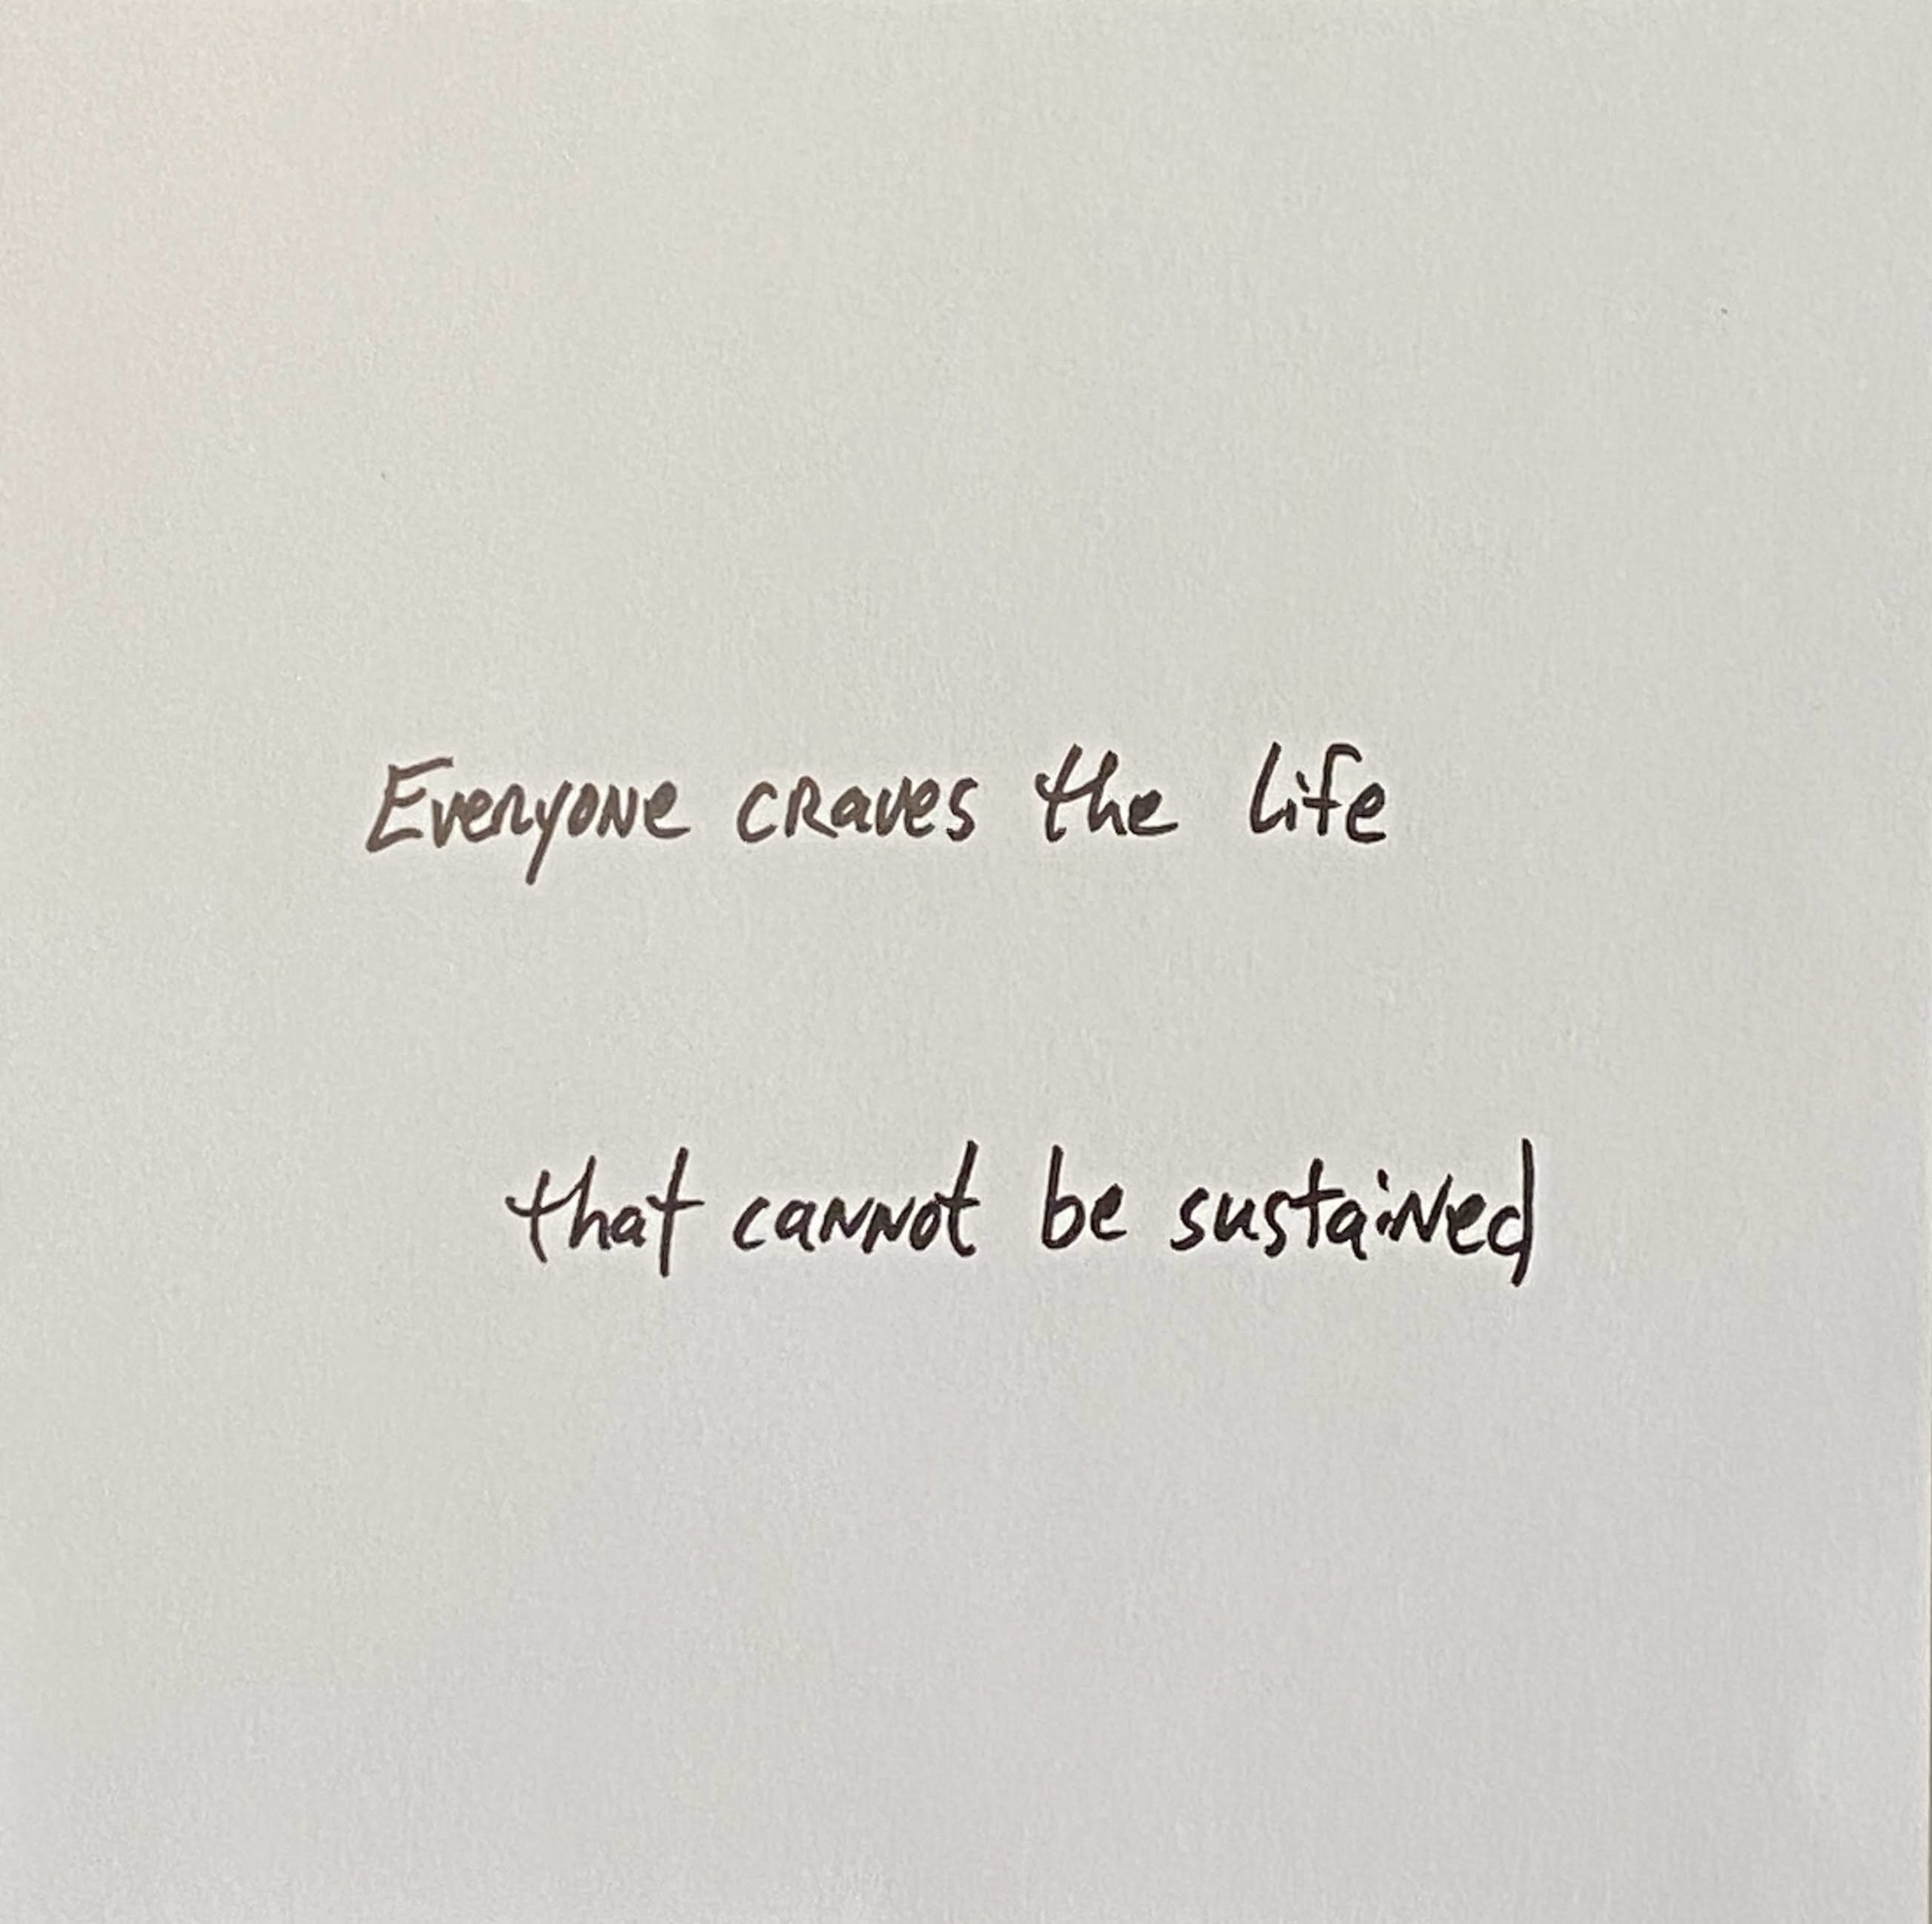 Everyone craves the life
that cannot be sustained